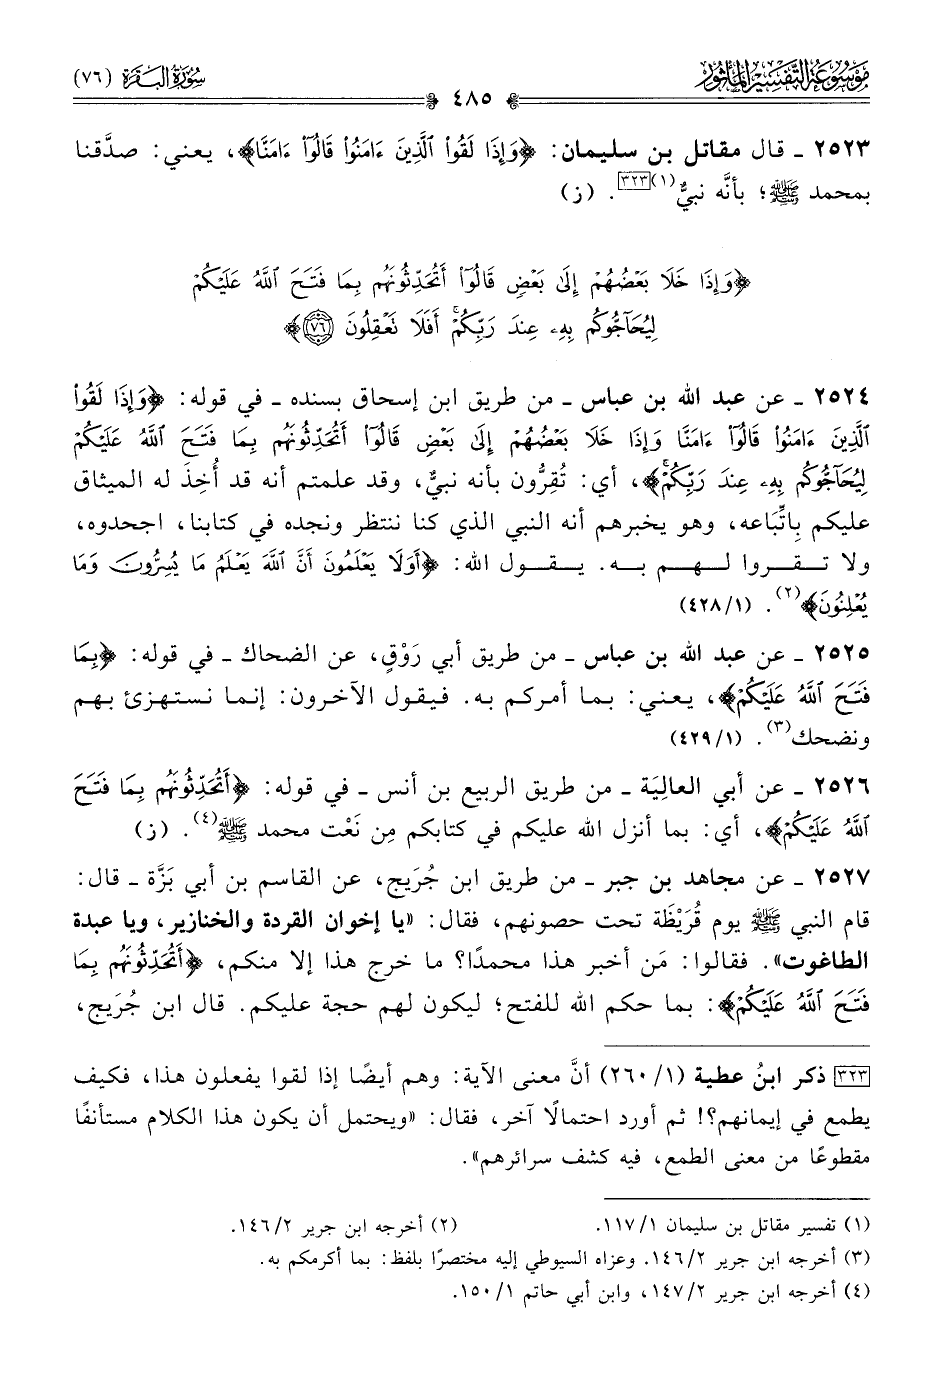 مَوْسُوعَةُ التَّفْسِيرِ المَأْثُورِ
سُورَةُ البَقَرَةِ (٧٦)
٤٨٥
٢٥٢٣ ـ قال مقاتل بن سليمان: ﴿وَإِذَا لَقُوا۟ ٱلَّذِينَ ءَامَنُوا۟ قَالُوٓا۟ ءَامَنَّا﴾، يعني: صدَّقنا
بمحمد ﷺ؛ بأنَّه نبيٌّ(١)[٣٢٣]. (ز)
﴿وَإِذَا خَلَا بَعْضُهُمْ إِلَىٰ بَعْضٍ قَالُوٓا۟ أَتُحَدِّثُونَهُم بِمَا فَتَحَ ٱللَّهُ عَلَيْكُمْ
لِيُحَآجُّوكُم بِهِۦ عِندَ رَبِّكُمْ ۚ أَفَلَا تَعْقِلُونَ ٧٦﴾
٢٥٢٤ ـ عن عبد الله بن عباس ـ من طريق ابن إسحاق بسنده ـ في قوله: ﴿وَإِذَا لَقُوا۟
ٱلَّذِينَ ءَامَنُوا۟ قَالُوٓا۟ ءَامَنَّا وَإِذَا خَلَا بَعْضُهُمْ إِلَىٰ بَعْضٍ قَالُوٓا۟ أَتُحَدِّثُونَهُم بِمَا فَتَحَ ٱللَّهُ عَلَيْكُمْ
لِيُحَآجُّوكُم بِهِۦ عِندَ رَبِّكُمْ ۚ﴾، أي: تُقِرُّون بأنه نبيٌّ، وقد علمتم أنه قد أُخِذَ له الميثاق
عليكم بِاتِّبَاعه، وهو يخبرهم أنه النبي الذي كنا ننتظر ونجده في كتابنا، اجحدوه،
ولا تقروا لهم به. يقول الله: ﴿أَوَلَا يَعْلَمُونَ أَنَّ ٱللَّهَ يَعْلَمُ مَا يُسِرُّونَ وَمَا
يُعْلِنُونَ﴾(٢). (٤٢٨/١)
٢٥٢٥ ـ عن عبد الله بن عباس ـ من طريق أبي رَوْقٍ، عن الضحاك ـ في قوله: ﴿بِمَا
فَتَحَ ٱللَّهُ عَلَيْكُمْ﴾، يعني: بما أمركم به. فيقول الآخرون: إنما نستهزئ بهم
ونضحك(٣). (٤٢٩/١)
٢٥٢٦ ـ عن أبي العالِيَة ـ من طريق الربيع بن أنس ـ في قوله: ﴿أَتُحَدِّثُونَهُم بِمَا فَتَحَ
ٱللَّهُ عَلَيْكُمْ﴾، أي: بما أنزل الله عليكم في كتابكم مِن نَعْت محمد ﷺ(٤). (ز)
٢٥٢٧ ـ عن مجاهد بن جبر ـ من طريق ابن جُرَيج، عن القاسم بن أبي بَزَّة ـ قال:
قام النبي ﷺ يوم قُرَيْظَة تحت حصونهم، فقال: «يا إخوان القردة والخنازير، ويا عبدة
الطاغوت». فقالوا: مَن أخبر هذا محمدًا؟ ما خرج هذا إلا منكم، ﴿أَتُحَدِّثُونَهُم بِمَا
فَتَحَ ٱللَّهُ عَلَيْكُمْ﴾: بما حكم الله للفتح؛ ليكون لهم حجة عليكم. قال ابن جُرَيج،
[٣٢٣] ذكر ابنُ عطية (٢٦٠/١) أنَّ معنى الآية: وهم أيضًا إذا لقوا يفعلون هذا، فكيف
يطمع في إيمانهم؟! ثم أورد احتمالًا آخر، فقال: «ويحتمل أن يكون هذا الكلام مستأنفًا
مقطوعًا من معنى الطمع، فيه كشف سرائرهم».
(١) تفسير مقاتل بن سليمان ١١٧/١.
(٢) أخرجه ابن جرير ١٤٦/٢.
(٣) أخرجه ابن جرير ١٤٦/٢. وعزاه السيوطي إليه مختصرًا بلفظ: بما أكرمكم به.
(٤) أخرجه ابن جرير ١٤٧/٢، وابن أبي حاتم ١٥٠/١.